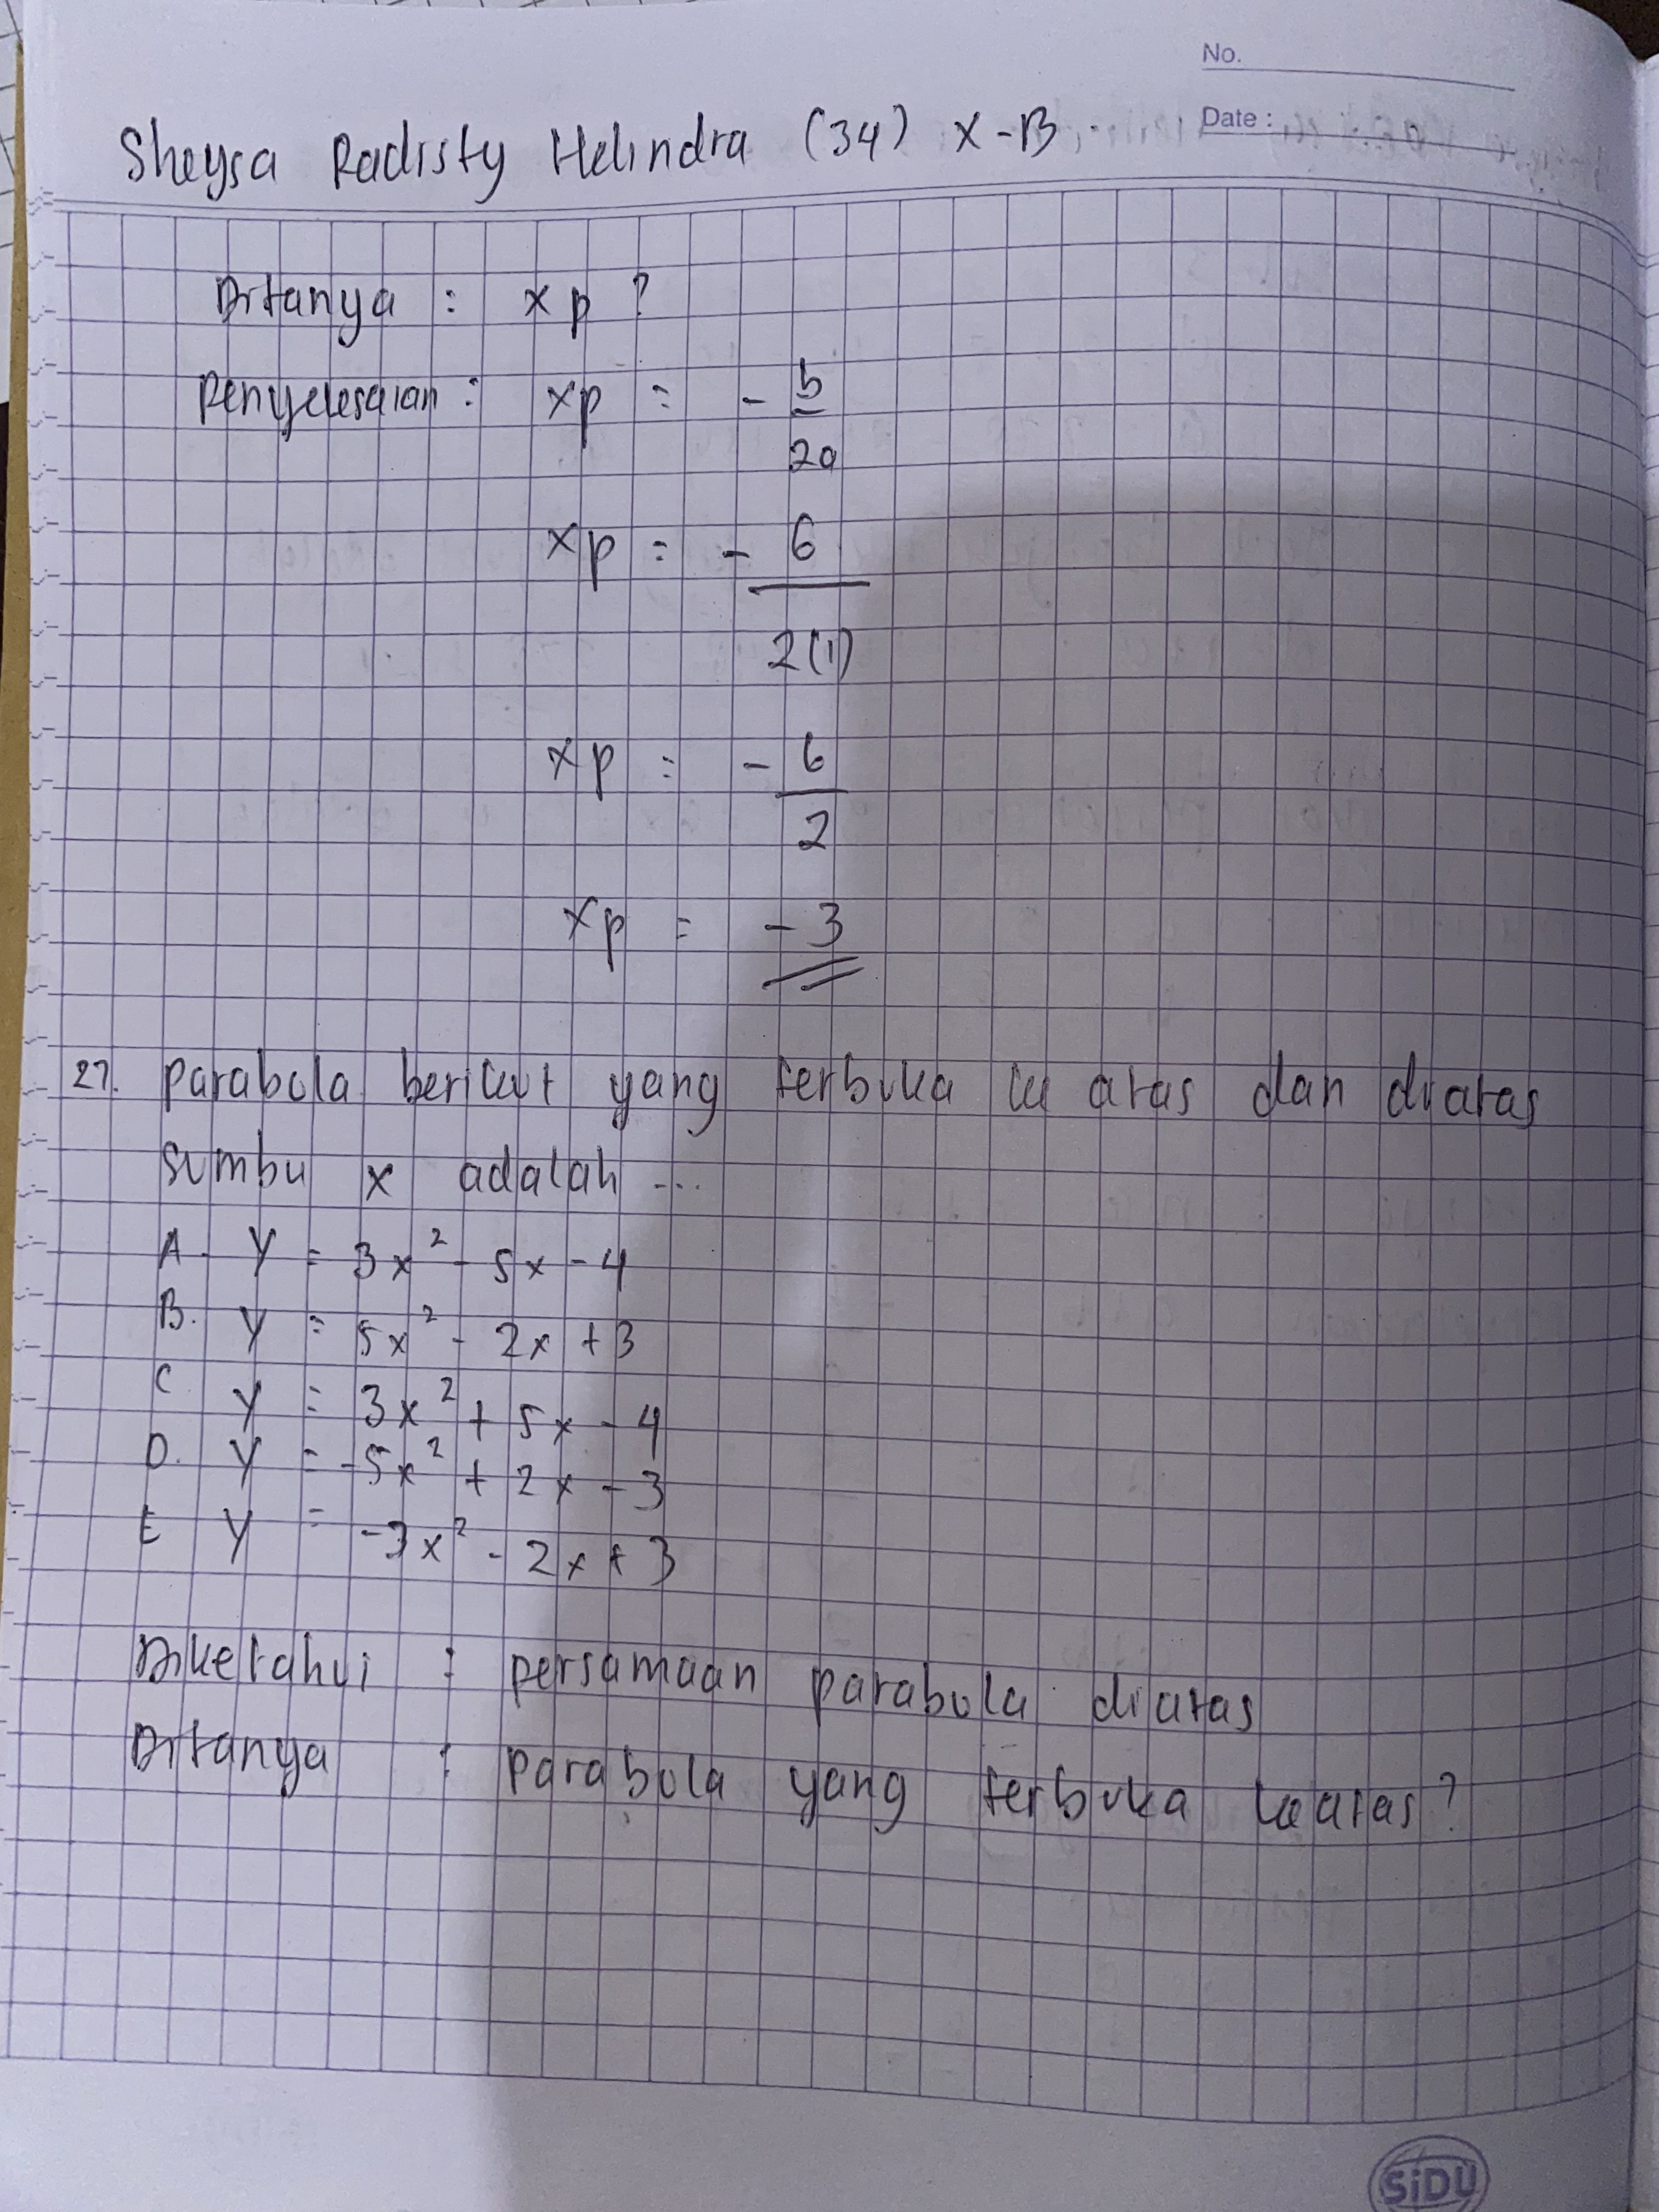 No.
Date :
Sheysa Radisty Helindra (34) X-B
Ditanya : xp ?
Penyelesaian : xp = - b
2a
xp = - 6
2(1)
xp = - 6
2
xp = - 3
27. Parabola berikut yang terbuka ke atas dan diatas
sumbu x adalah ...
A. y = 3x² - 5x - 4
B. y = 5x² - 2x + 3
C y = 3x² + 5x - 4
D. y = -5x² + 2x - 3
E y = -3x² - 2x + 3
Diketahui : persamaan parabola diatas
Ditanya : parabola yang terbuka keatas?
SiDU